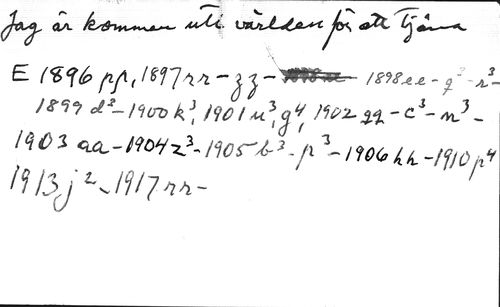 Jag är kommen uti världen för att tjäna
E 1896 pp, 1897 rr - zz - 1898 ee - q³ - r³ -
1899 d² - 1900 k³, 1901 u³, g⁴, 1902 qq - c³ - n³ -
1903 aa - 1904 z³ - 1905 b³ - p³ - 1906 hh - 1910 p⁴
1913 j² - 1917 rr -